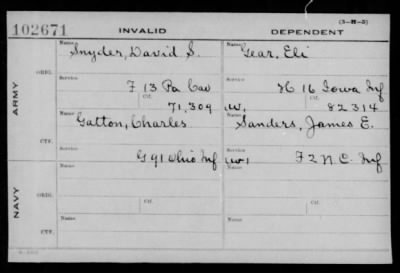 (3-H-5)
102671 INVALID DEPENDENT
Name Snyder, David S. Name Gear, Eli
ORIG. Service F 13 Pa Cav Service H 16 Iowa Inf
Ctf. 71,309 Ctf. W, 82314
ARMY
Name Gatton, Charles Name Sanders, James E.
CTF. Service G 91 Ohio Inf Service (W) F 2 N.C. Inf
Name Name
ORIG. Service Service
Ctf. Ctf.
NAVY
Name Name
CTF. Service Service